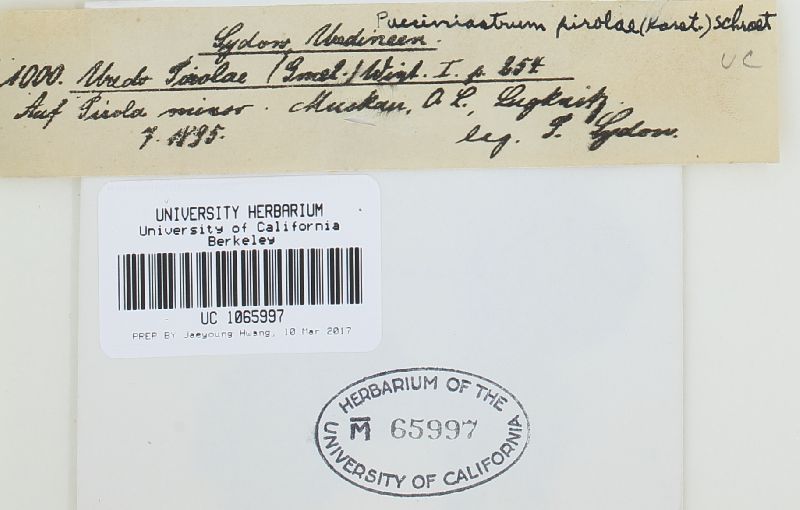 Pucciniastrum pirolae (Karst.) Schroet
Sydow, Uredineen.
UC
1000. Uredo Pirolae (Gmel.) Wint. I. p. 254
Auf Pirola minor. Muskau, O. L.,
7. 1895.
leg. P. Sydow.
UNIVERSITY HERBARIUM
University of California
Berkeley
UC 1065997
PREP BY Jaeyoung Hwang, 10 Mar 2017
HERBARIUM OF THE
M 65997
UNIVERSITY OF CALIFORNIA